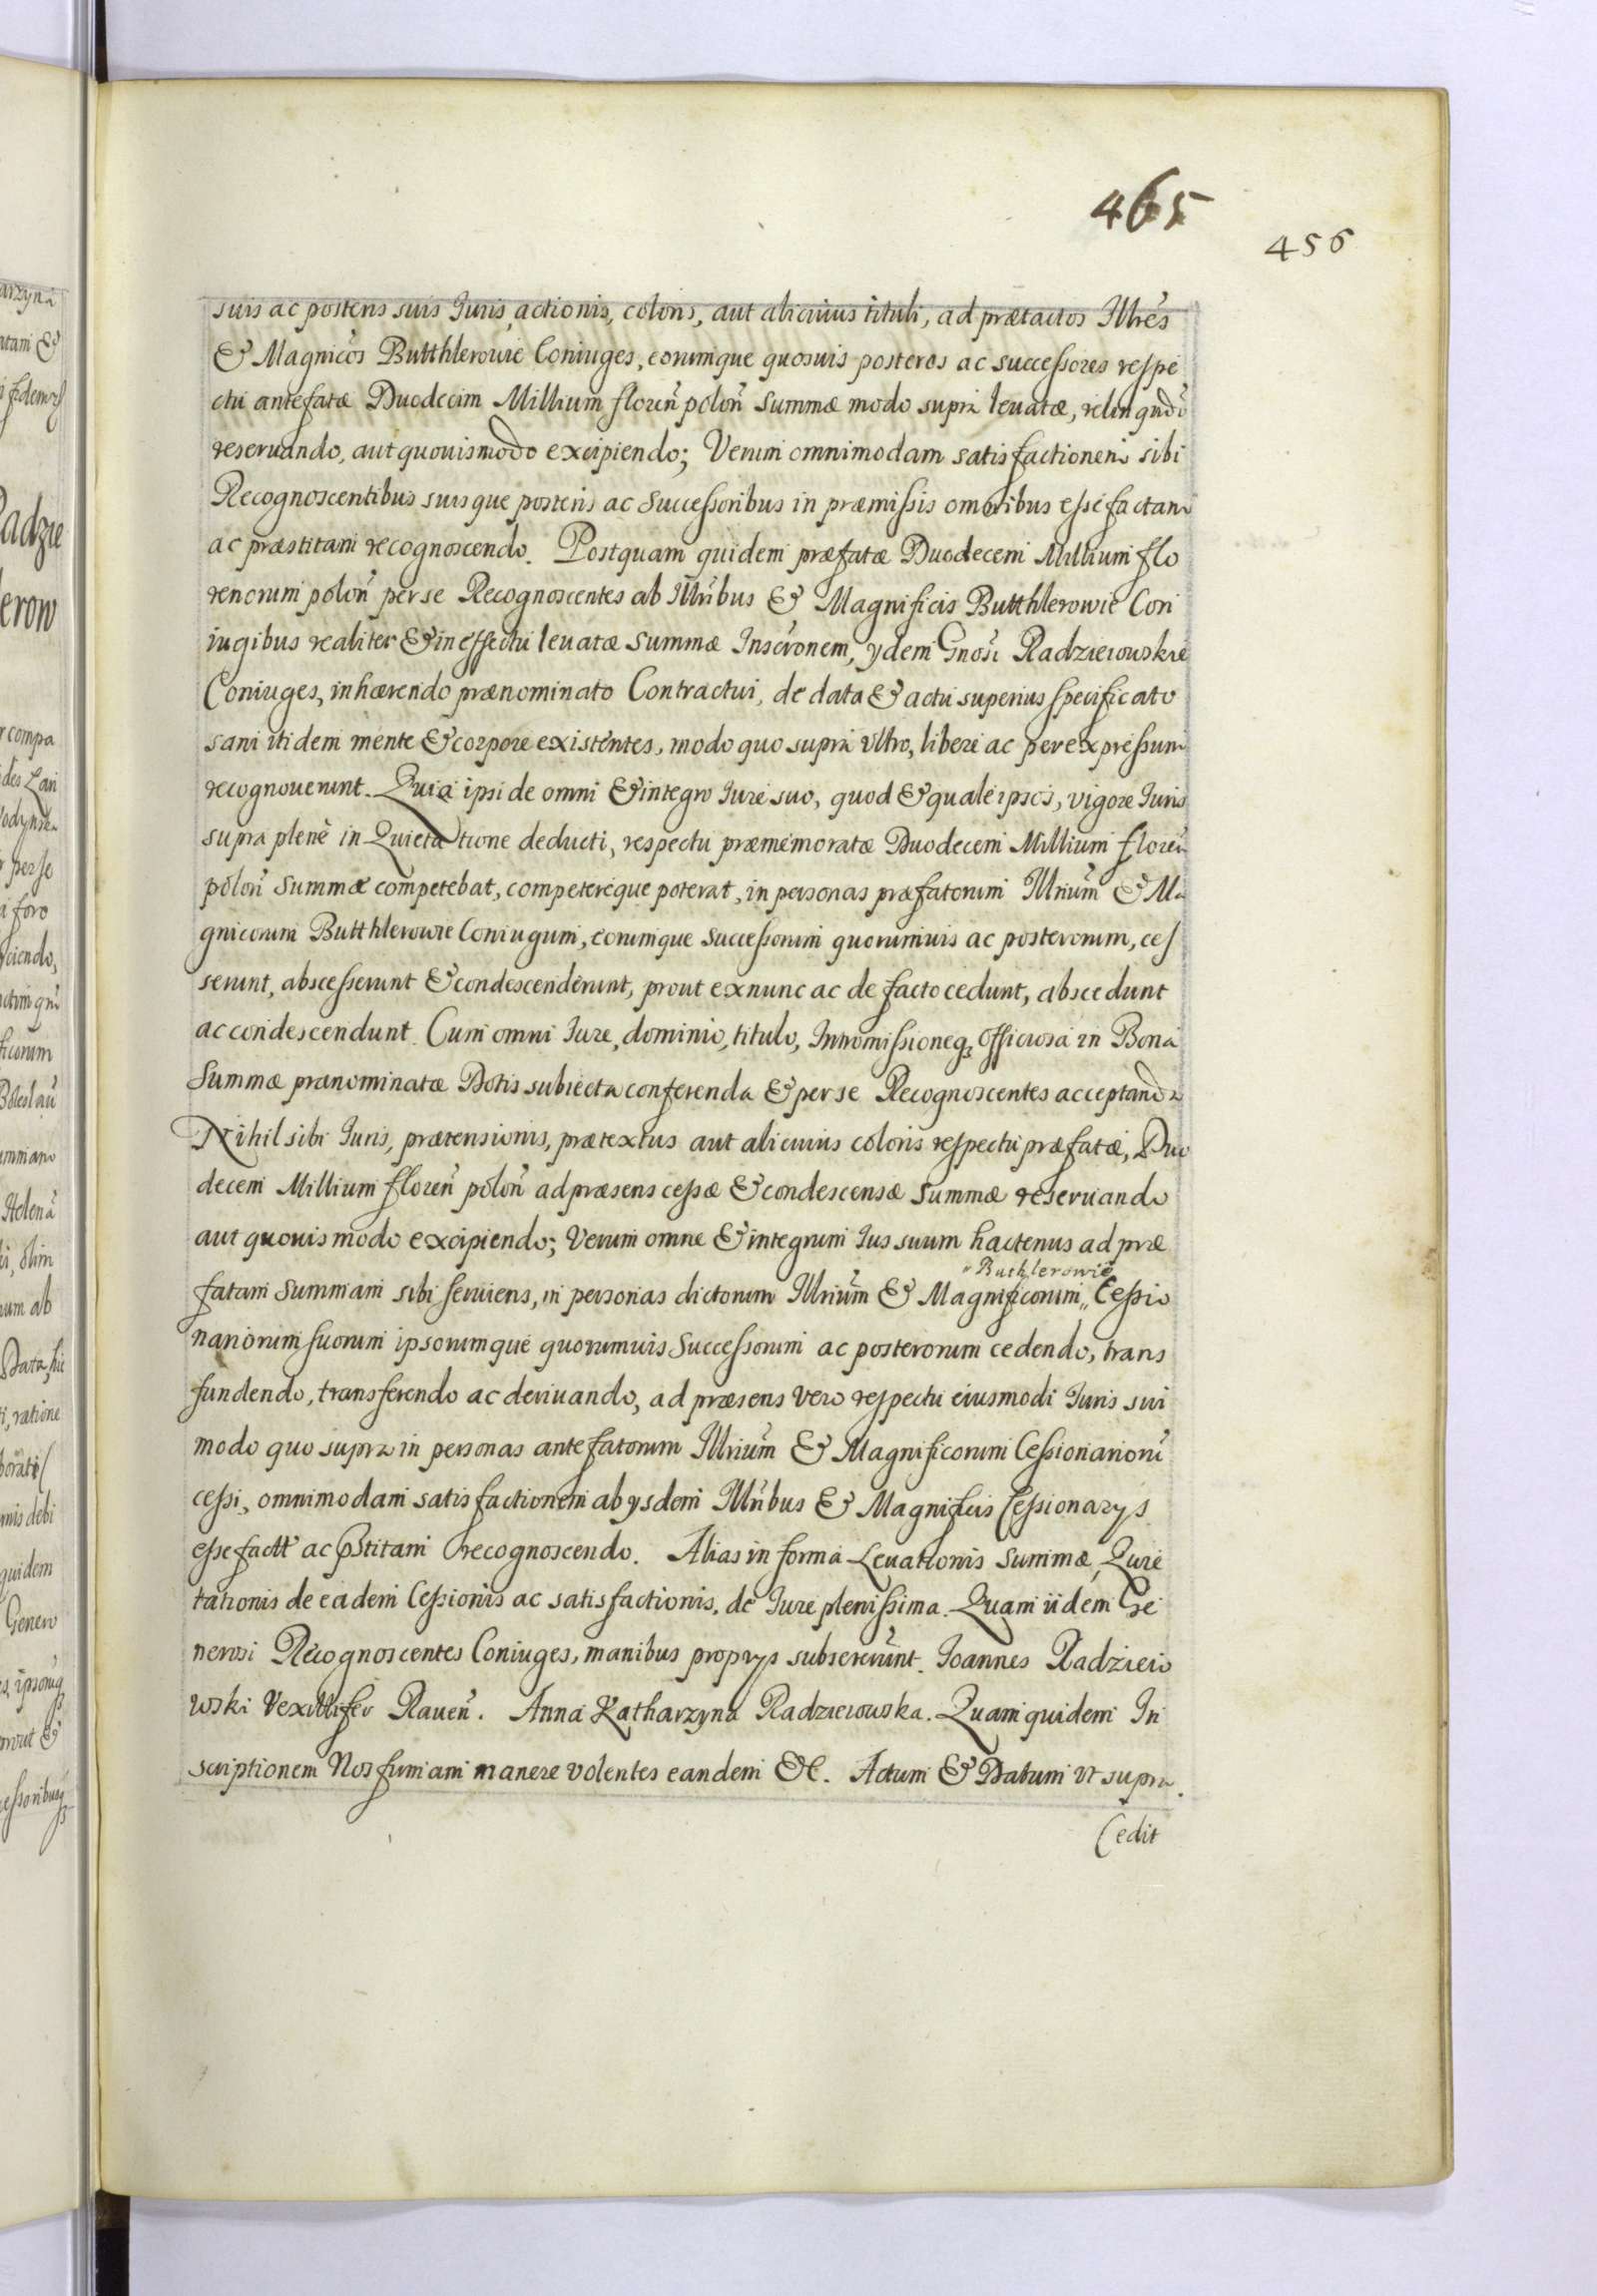 465
456
suis ac posteris suis Iuris, actionis, coloris, aut alicuius tituli, ad prætactos Illres
& Magnicos Butthlerowie Coniuges, eorumque quosuis posteros ac successores respe
ctu antefatæ Duodecim Millium floren polon summæ modo supra leuatæ, relinqndo
reseruando, aut quouismodo excipiendo; Verum omnimodam satisfactionem sibi
Recognoscentibus suisque posteris ac successoribus in præmissis omnibus esse factam
ac præstitam recognoscendo. Postquam quidem præfatæ Duodecem Millium flo
renorum polon per se Recognoscentes ab Illribus & Magnificis Butthlerowie Con
iugibus realiter & in effectu leuatæ summæ Inscronem, ydem Gnosi Radzieiouskie
Coniuges, inhærendo prænominato Contractui, de data & actu superius specificato
sani itidem mente & corpore existentes, modo quo supra Vltro, libere ac per expressum
recognouerunt. Quia ipsi de omni & integro Iure suo, quod & quale ipsos, vigore Iuris
supra plene in Quietatione deducti, respectu præmemoratæ Duodecem Millium floren
polon summæ competebat, competereque poterat, in personas præfatorum Illrium & Ma
gnicorum Butthlerowie Coniugum, eorumque successorum quorumuis ac posterorum, ces
serunt, abscesserunt & condescenderunt, prout ex nunc ac de facto cedunt, abscedunt
ac condescendunt. Cum omni Iure, dominio, titulo, Intromissioneq3 Officiosa in Bona
Summæ prænominatæ Dotis subiecta conferenda & per se Recognoscentes acceptanda
Nihil sibi Iuris, prætensionis, prætextus aut alicuius coloris respectu præfatæ, Duo
decem Millium floren polon ad præsens cessæ & condescensæ summæ reseruando
aut quouis modo excipiendo; Verum omne & integrum Ius suum hactenus ad præ
" Buthlerowie
fatam Summam sibi seruiens, in personas dictorum Illrium & Magnificorum " Cessio
nariorum suorum ipsorumque quorumuis Successorum ac posterorum cedendo, trans
fundendo, transferendo ac deriuando, ad præsens vero respectu eiusmodi Iuris sui
modo quo supra in personas antefatorum Illrium & Magnificorum Cessionarioru
cessi, omnimodam satisfactionem ab ysdem Illribus & Magnificis Cessionarys
esse factt ac pstitam recognoscendo. Alias in forma Leuationis summæ, Quie
tationis de eadem Cessionis ac satisfactionis, de Iure plenissima. Quam iidem Ge
nerosi Recognoscentes Coniuges, manibus proprys subscrerunt. Ioannes Radzieio
wski Vexillifer Rauen. Anna Katharzyna Radzieiouska. Quam quidem In
scriptionem Nos firmam manere volentes eandem &c. Actum & Datum vt supra.
Cedit